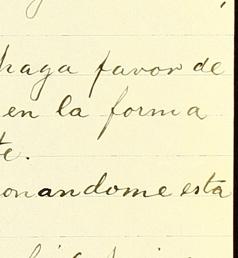 haga favor de
en la forma
te.
onandome esta